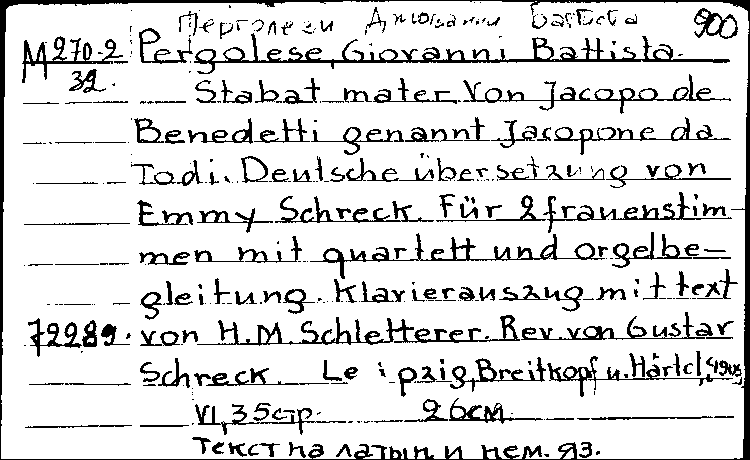 Перголези Джованни Батиста 900
M 270-2 Pergolese, Giovanni Battista.
39. Stabat mater. Von Jacopo de
Benedetti genannt Jacopone da
Todi. Deutsche übersetzung von
Emmy Schreck. Für 2 frauenstim-
men mit quartett und orgelbe-
gleitung. Klavierauszug mit text
72289. von H.M. Schletterer. Rev. von Gustav
Schreck. Leipzig, Breitkopf u. Härtel,
VI, 35 стр. 26 см.
Текст на латын. и нем. яз.